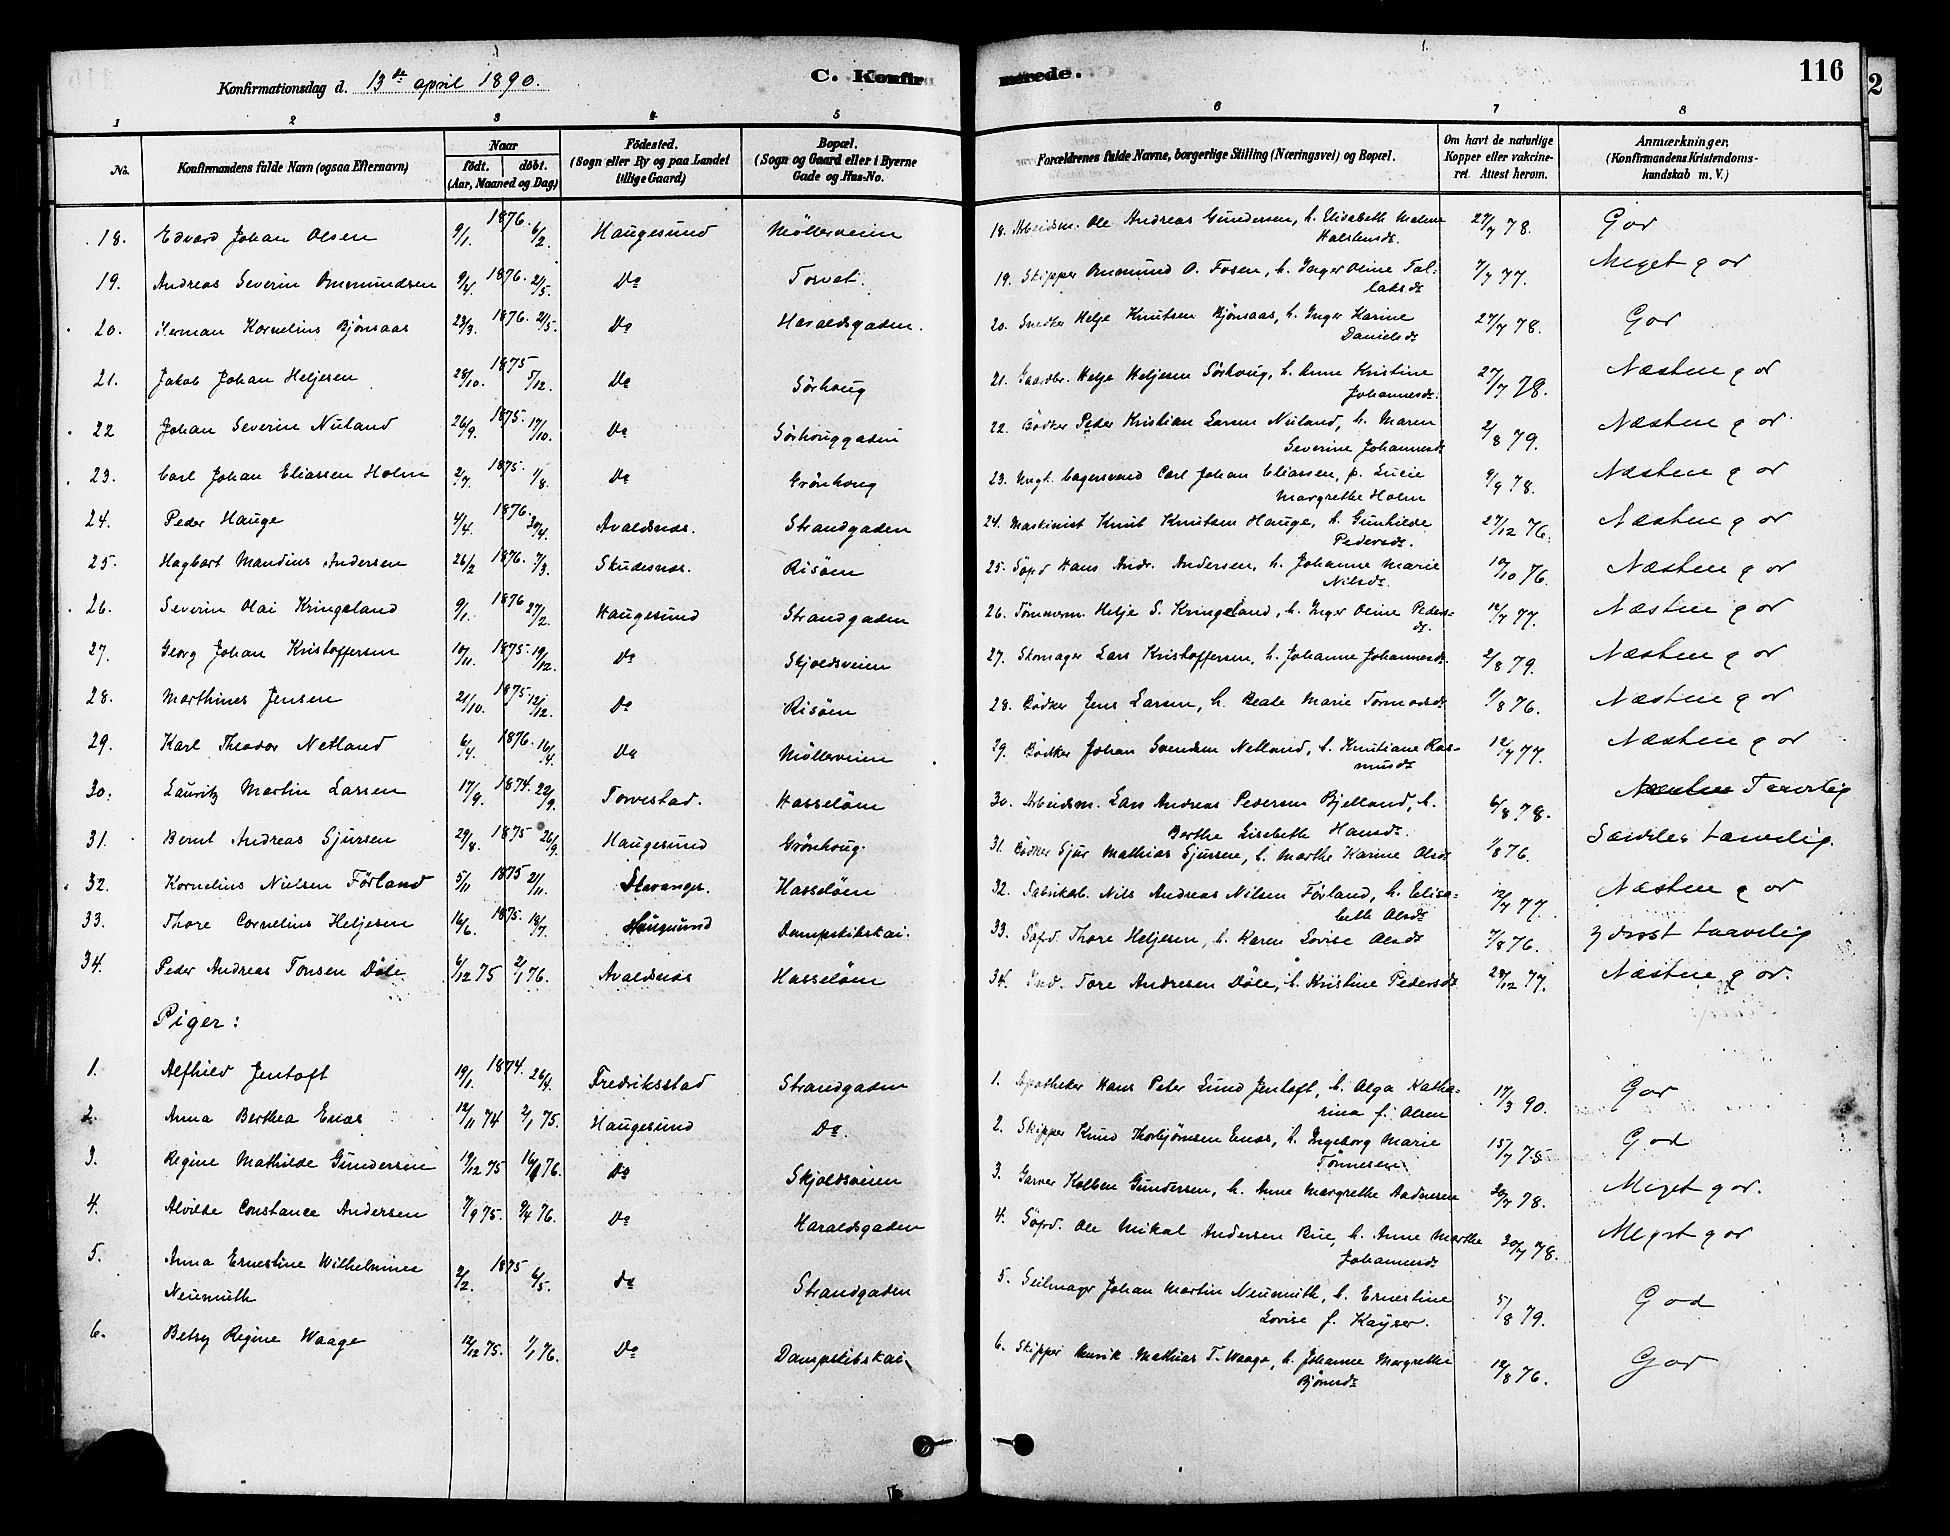 Konfirmationsdag d. 13de april 1890.
C. Konfirmerede.
116
2
1 2 3 4 5 6 7 8
No.
Konfirmandens fulde Navn (ogsaa Efternavn)
Naar
födt. döbt.
(Aar, Maaned og Dag)
Födested.
(Sogn eller By og paa Landet
tillige Gaard)
Bopæl.
(Sogn og Gaard eller i Byerne
Gade og Hus-No.
Forældrenes fulde Navne, borgerlige Stilling (Næringsvei) og Bopæl.
Om havt de naturlige
Kopper eller vakcine-
ret. Attest herom.
Anmærkninger.
(Konfirmandens Kristendoms-
kundskab m. V.)
18. Edvard Johan Olsen 9/1. 1876. 6/2. Haugesund Möllerveien 18. Arbeidsm. Ole Andreas Gundersen, h. Elisabeth Malene 27/7 78. God
19. Andreas Severin Ommundsen 9/4. 1876. 21/5. Do Torvet. 19. Skipper Ommund O. Fosen, h. Inger Oline Tol- 7/7 77. Meget god
laksdr
20. Herman Kornelius Bjönsaas 23/3. 1876. 21/5. Do Haraldsgaden. 20. Snedker Helje Knutsen Bjönsaas, h. Inger Karine 27/7 78. God
Danielsdr
21. Jakob Johan Heljesen 28/10. 1875 5/12. Do Sörhoug 21. Gaardbr. Helje Heljesen Sörhoug, h. Anne Kristine 27/7 78. Næsten god
Johannesdr.
22 Johan Severin Nuland 26/9. 1875. 17/10. Do Sörhouggaden 22. Bödker Peder Kristian Larsen Nuland, h. Maren 2/8 79. Næsten god
Severine Johannesdr
23. Carl Johan Eliassen Holm 2/7. 1875. 1/8. Do Grönhoug 23. Ungk. Bagersvend Carl Johan Eliassen, p. Lucie 9/9 78. Næsten god
Margrethe Holm
24. Peder Hauge 4/4. 1876. 20/4. Avaldsnæs. Strandgaden 24. Maskinist Knut Knutsen Hauge, h. Gunhilde 27/12 76. Næsten god
Pedersdr.
25. Hagbart Mandius Andersen 26/2 1876. 7/3. Skudesnæs. Risöen 25. Söfd Hans Andr. Andersen, h. Johanne Marie 19/10 76. Næsten god
Nilsdr.
26. Severin Olai Kringeland 9/1. 1876 27/2. Haugesund Strandgaden 26. Tömmerm. Helje S. Kringeland, h. Inger Oline Peders- 12/7 77. Næsten god
dr.
27. Georg Johan Kristoffersen 10/11. 1875. 19/12. Do Skjoldsveien 27. Skomager Lars Kristoffersen, h. Johanne Johannesdr. 2/8 79. Næsten god
28. Marthines Jensen 21/10. 1875 12/12. Do Risöen 28. Bödker Jens Larsen, h. Beate Marie Tormodsdr 1/8 76. Næsten god
29. Karl Theodor Netland 6/4. 1876. 16/4. Do Möllerveien 29. Bödker Johan Svendsen Netland, h. Knutiane Ras- 12/7 77. Næsten god
musdr
30. Lauritz Martin Larsen 17/9. 1874. 22/9. Torvestad. Hasselöen 30. Arbeidsm. Lars Andreas Pedersen Bjelland, h. 6/8 78. Tarvelig
Berthe Lisebeth Hansdr.
31. Bernt Andreas Sjursen 29/8. 1875 26/9. Haugesund Grönhoug. 31. Bödker Sjur Mathias Sjursen, h. Marthe Karine Olsdr 1/8 76. Særdeles tarvelig.
32. Kornelius Nielsen Förland 5/11 1875 21/11. Stavanger. Hasselöen 32. Fabrikarb. Nils Andreas Nilsen Förland, h. Elisa- 12/7 77. Næsten god
beth Olsdr
33. Thore Cornelius Heljesen 16/6. 1875. 18/7. Haugesund Dampskibskai. 33. Söfd Thore Heljesen, h. Karen Lovise Olsdr 7/8 76. Yderst tarvelig
34. Peder Andreas Tonsen Döle 6/12 75 2/1 76. Avaldsnæs Hasselöen 34. Ind. Tore Andresen Döle, h. Kristine Pedersdr 28/12 77. Næsten god.
Piger:
1. Alfhild Jentoft 19/1. 1874. 26/4. Fredriksstad Strandgaden 1. Apotheker Hans Peter Lund Jentoft, h. Olga Katha- 17/3 90. God
rina f. Olsen
2. Anna Berthea Enæs 12/11 74 2/1 75. Haugesund Do. 2. Skipper Knud Thorbjörnsen Enæs, h. Ingeborg Marie 15/7 75 God
Tönnesen
3. Regine Mathilde Gundersen 19/12 75 16/1 76. Do Skjoldsveien 3. Garver Kolben Gundersen, h. Anne Margrethe Aadnesen 20/7 78. Meget god.
4. Alvilde Constance Andersen 7/9 75. 9/4 76. Do Haraldsgaden 4. Söfd. Ole Mikal Andersen Bue, h. Anne Marthe 20/7 78. Meget god
Johannesdr
5. Anna Ernestine Wilhelmine 2/2. 1875 6/5. do Strandgaden 5. Seilmager Johan Martin Neumuth, h. Ernestine 5/8 79. God
Neumuth Lovise f. Kayser.
6. Betsy Regine Waage 12/12 75. 1/1 76. Do Dampskibskai. 6. Skipper Henrik Mathias T. Waage, h. Johanne Margrethe 12/8 76. God
Björnsdr